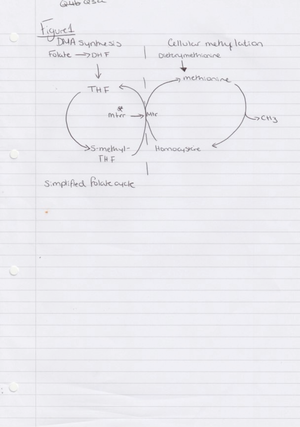 Figure 1
DNA synthesis
Cellular methylation
Folate → DHF
methionine
THF
*
mtrr → mtr
CH3
5-methyl-
THF
Homocysteine
Simplified folate cycle